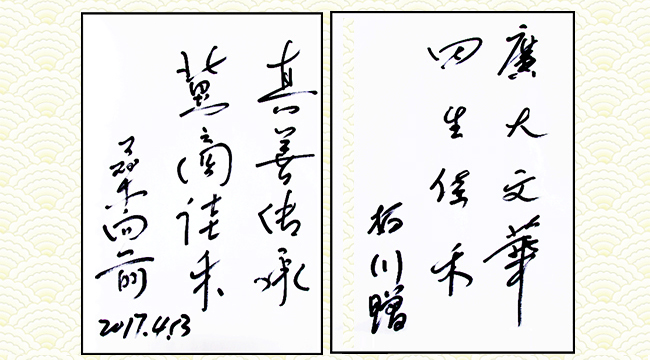 真善传承
冀商佳禾
桑向前
2017.4.13
廣大文華
田生佳禾
柏川贈